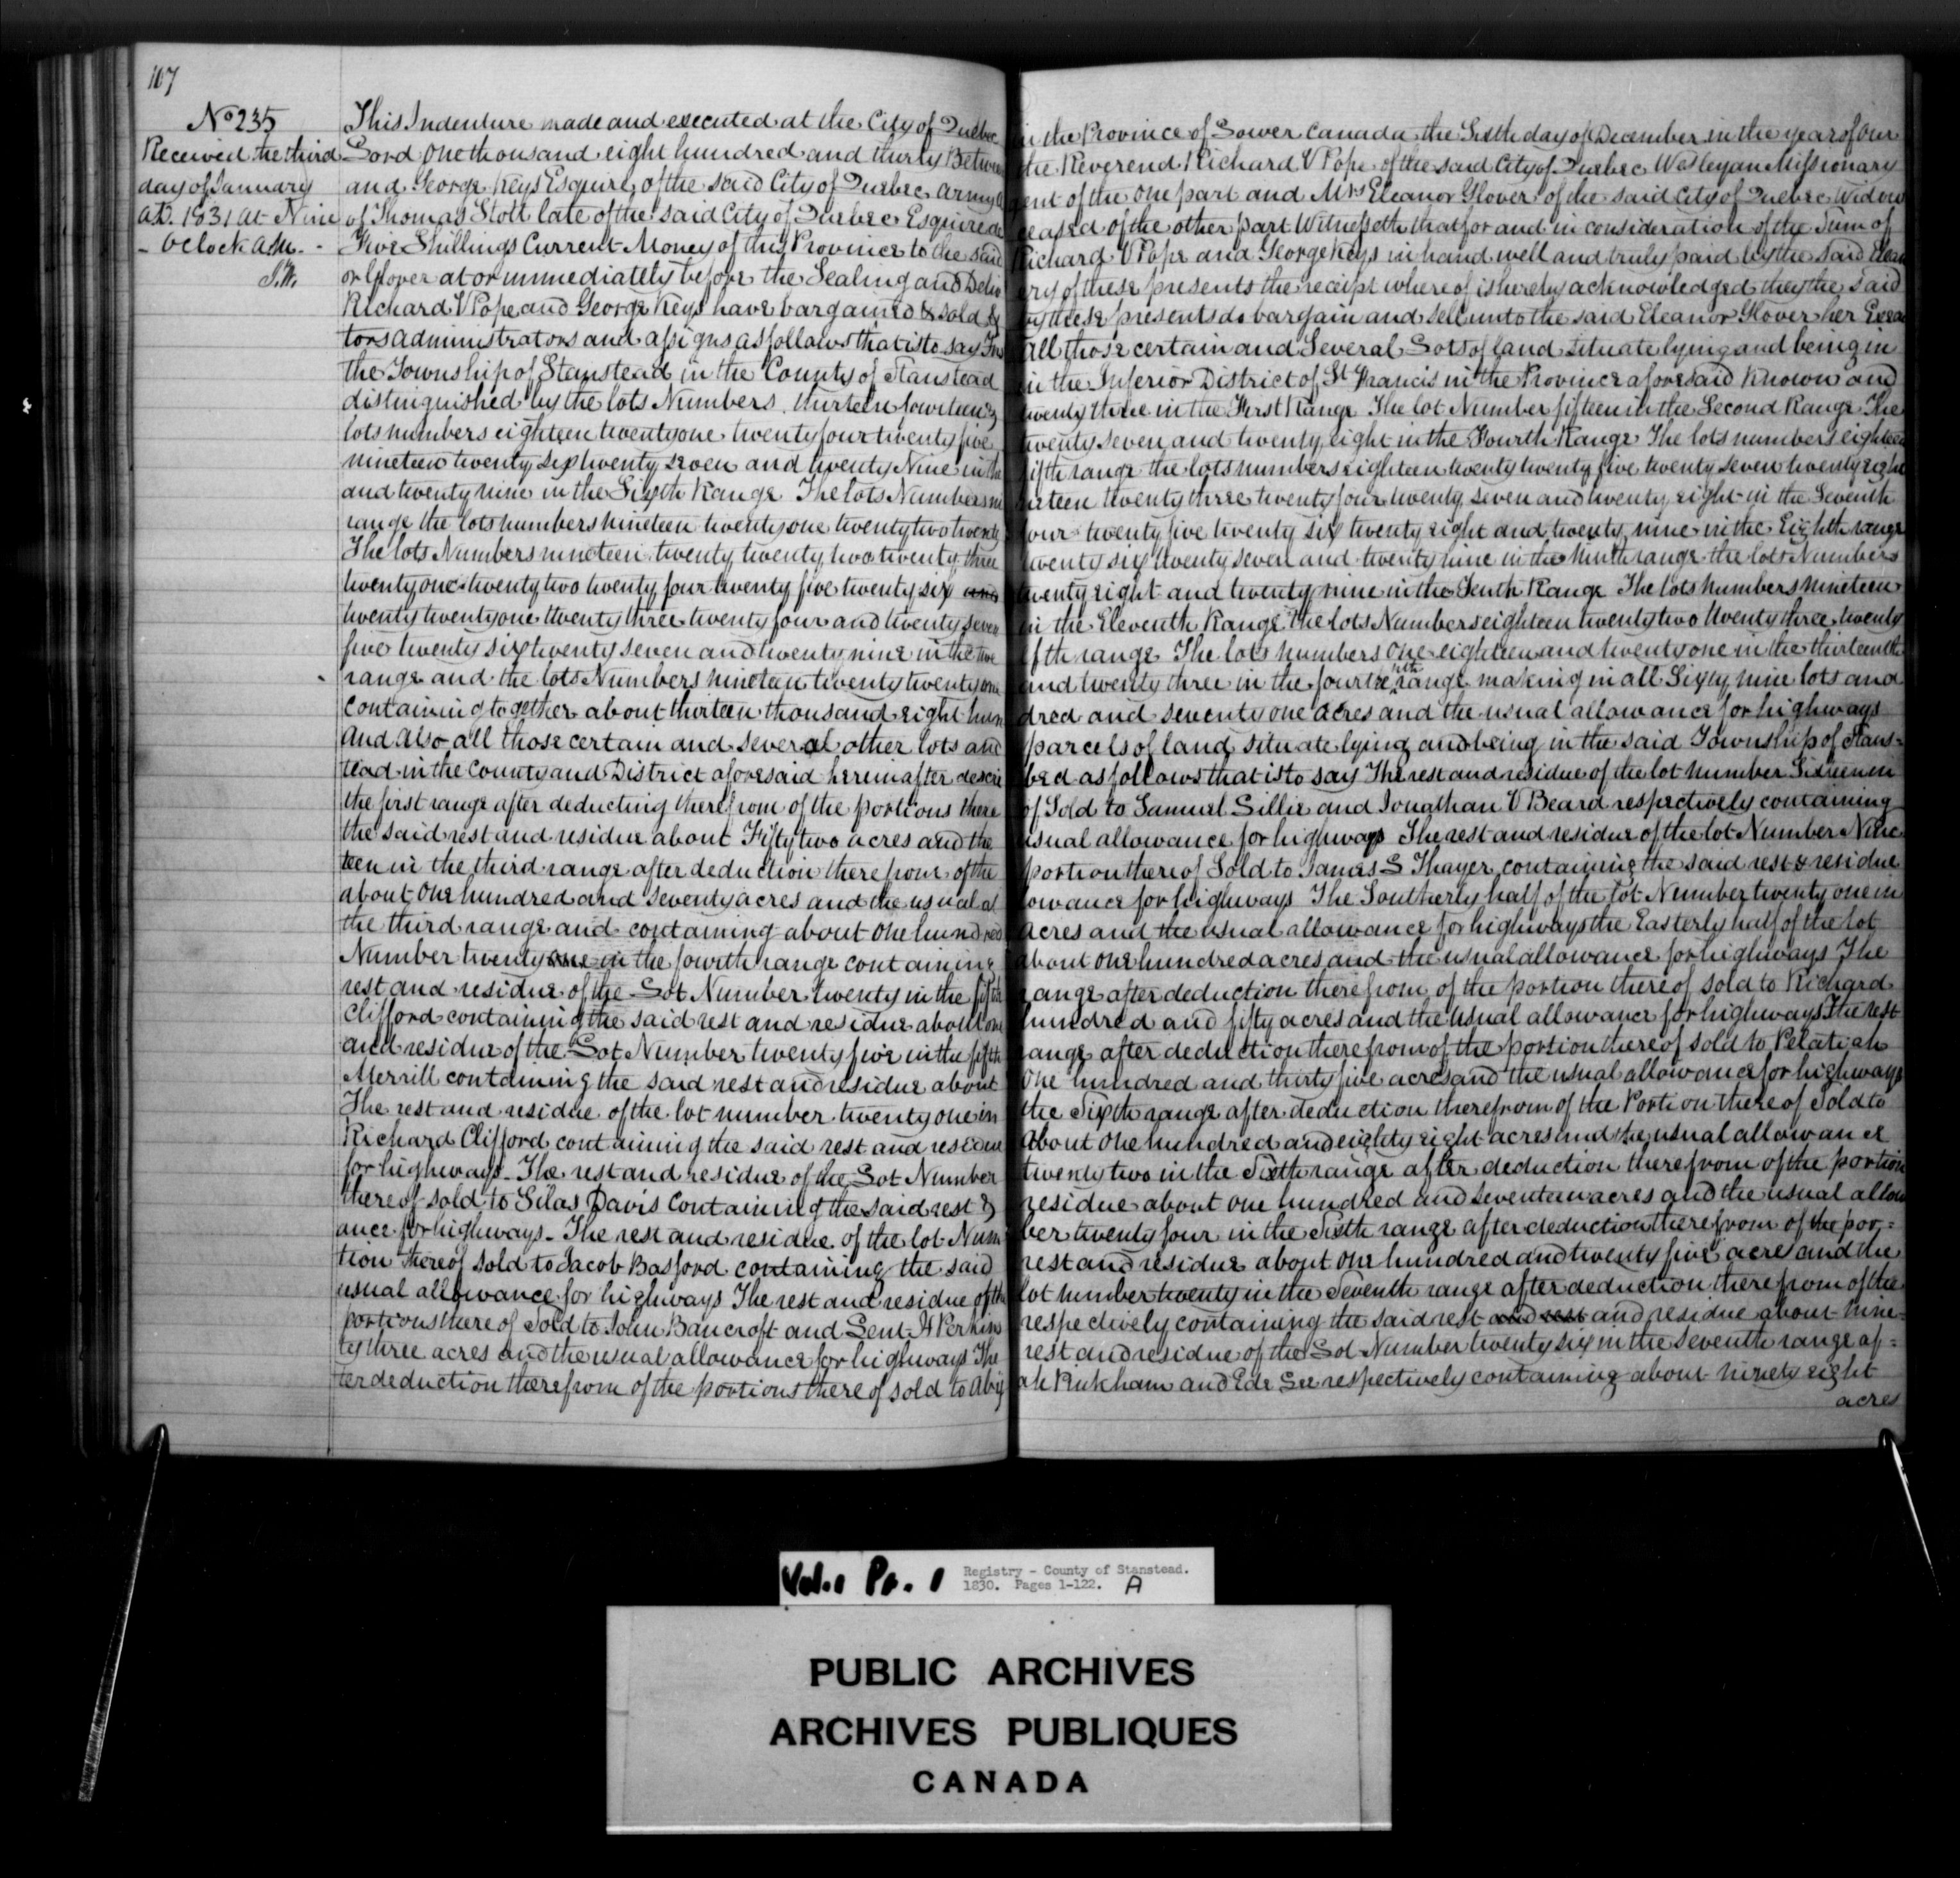 107
No 235
Received the third
day of January
A.D. 1831 at Nine
- Oclock A.M. -
This Indenture made and executed at the City of Quebec in the Province of Lower Canada the Sixth day of December in the year of Our
Lord One thousand eight hundred and thirty Between the Reverend Richard V Pope of the said City of Quebec Wesleyan Missionary
and George Keys Esquire of the said City of Quebec army agent of the One part and Mrs Eleanor Glover of the said City of Quebec Widow
of Thomas Stott late of the said City of Quebec Esquire deceased of the other part Witnesseth that for and in consideration of the Sum of
Five Shillings Current Money of this Province to the said Richard V Pope and George Keys in hand well and truly paid by the said Elean
or Glover at or immediately before the Sealing and Delivery of these presents the receipt whereof is hereby acknowledged they the said
Richard V Pope and George Keys have bargained & sold & by these presents do bargain and sell unto the said Eleanor Glover her Execu
tors administrators and assigns as follows that is to say all those certain and Several Lots of land situate lying and being in
the Township of Stanstead in the County of Stanstead in the Inferior District of St Francis in the Province aforesaid known and
distinguished by the lots Numbers thirteen fourteen & twenty three in the First Range The lot Number fifteen in the Second Range The
lots numbers eighteen twenty one twenty four twenty five twenty seven and twenty eight in the Fourth Range The lots numbers eighteen
nineteen twenty six twenty seven and twenty Nine in the fifth range the lots numbers eighteen twenty twenty five twenty seven twenty eight
and twenty nine in the Sixth Range The lots Numbers nineteen twenty three twenty four twenty seven and twenty eight in the Seventh
range the lots numbers nineteen twenty one twenty two twenty four twenty five twenty six twenty eight and twenty nine in the Eighth range
The lots Numbers nineteen twenty twenty two twenty three twenty six twenty seven and twenty nine in the ninth range the lots Numbers
twenty one twenty two twenty four twenty five twenty six and twenty eight and twenty nine in the Tenth Range The lots numbers nineteen
twenty twenty one twenty three twenty four and twenty seven in the Eleventh Range The lots Numbers eighteen twenty two twenty three twenty
five twenty six twenty seven and twenty nine in the twelfth range The lots numbers one eighteen and twenty one in the thirteenth
range and the lots Numbers nineteen twenty twenty one and twenty three in the fourteenth range making in all Sixty nine lots and
containing together about thirteen thousand eight hundred and seventy one acres and the usual allowance for highways
And also all those certain and several other lots and parcels of land situate lying and being in the said Township of Stans=
tead in the County and District aforesaid hereinafter described as follows that is to say The rest and residue of the lot number Sixteen in
the first range after deducting therefrom of the portions thereof Sold to Samuel Sillie and Jonathan V Beard respectively containing
the said rest and residue about Fifty two acres and the usual allowance for highways The rest and residue of the lot Number Nine
teen in the third range after deduction therefrom of the portion thereof Sold to James S Thayer containing the said rest & residue
about one hundred and seventy acres and the usual allowance for highways The Southerly half of the lot Number twenty one in
the third range and containing about one hundred acres and the usual allowance for highways the Easterly half of the lot
Number twenty one in the fourth range containing about one hundred acres and the usual allowance for highways The
rest and residue of the Lot Number twenty in the fifth range after deduction therefrom of the portion thereof sold to Richard
Clifford containing the said rest and residue about one hundred and fifty acres and the usual allowance for highways The rest
and residue of the Lot Number twenty five in the fifth range after deduction therefrom of the portion thereof sold to Pelatiah
Merrill containing the said rest and residue about One hundred and thirty five acres and the usual allowance for highways
The rest and residue of the lot number twenty one in the Sixth range after deduction therefrom of the Portion thereof Sold to
Richard Clifford containing the said rest and residue about One hundred and eighty eight acres and the usual allowance
for highways - The rest and residue of the Lot Number twenty two in the Sixth range after deduction therefrom of the portion
thereof sold to Silas Davis containing the said rest & residue about one hundred and seventeen acres and the usual allow
ance for highways - The rest and residue of the lot Number twenty four in the Sixth range after deduction therefrom of the por=
tion thereof sold to Jacob Basford containing the said rest and residue about One hundred and twenty five acres and the
usual allowance for highways The rest and residue of the lot number twenty in the Seventh range after deduction therefrom of the
portions thereof sold to John Bancroft and H Perkins respectively containing the said rest and rest and residue about nine=
ty three acres and the usual allowance for highways The rest and residue of the Lot Number twenty six in the seventh range af=
ter deduction therefrom of the portions thereof sold to Abijah and respectively containing about ninety eight
acres
Vol. 1 Pt. 1
Registry - County of Stanstead.
1830. Pages 1-122. A
PUBLIC ARCHIVES
ARCHIVES PUBLIQUES
CANADA